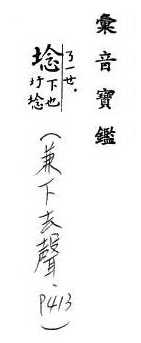 彙音寶鑑
埝
ㄋㄧㄝ。
下也
圩埝
(兼下去聲、P413)